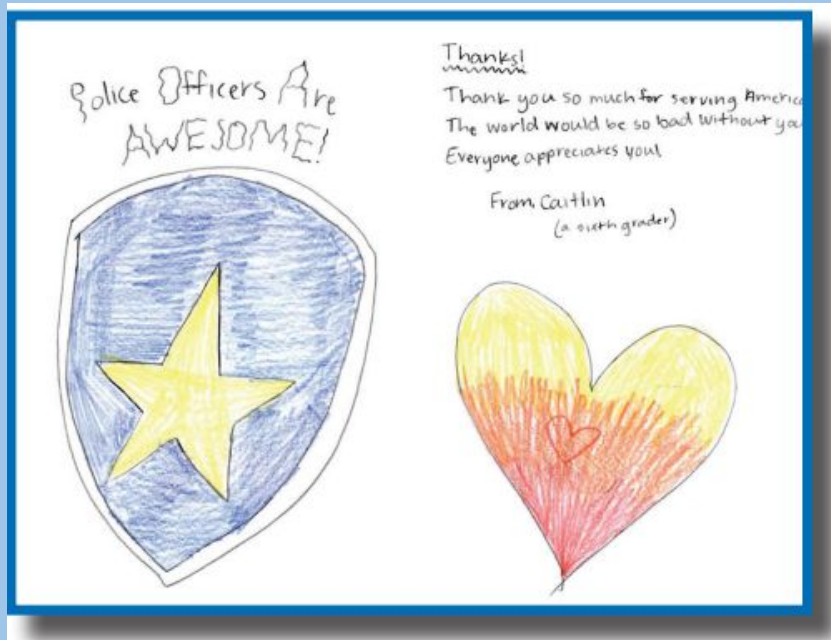 Police Officers Are
AWESOME!
Thanks!
Thank you so much for serving
The world would be so bad without
Everyone appreciates you!
From, Caitlin
(a sixth grader)